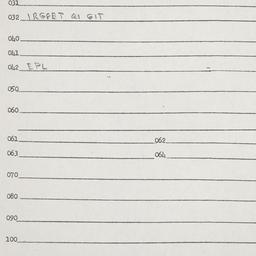 031
032 IRSPET QI GIT
040
041
042 EPL
050
060
061 062
063 064
070
080
090
100